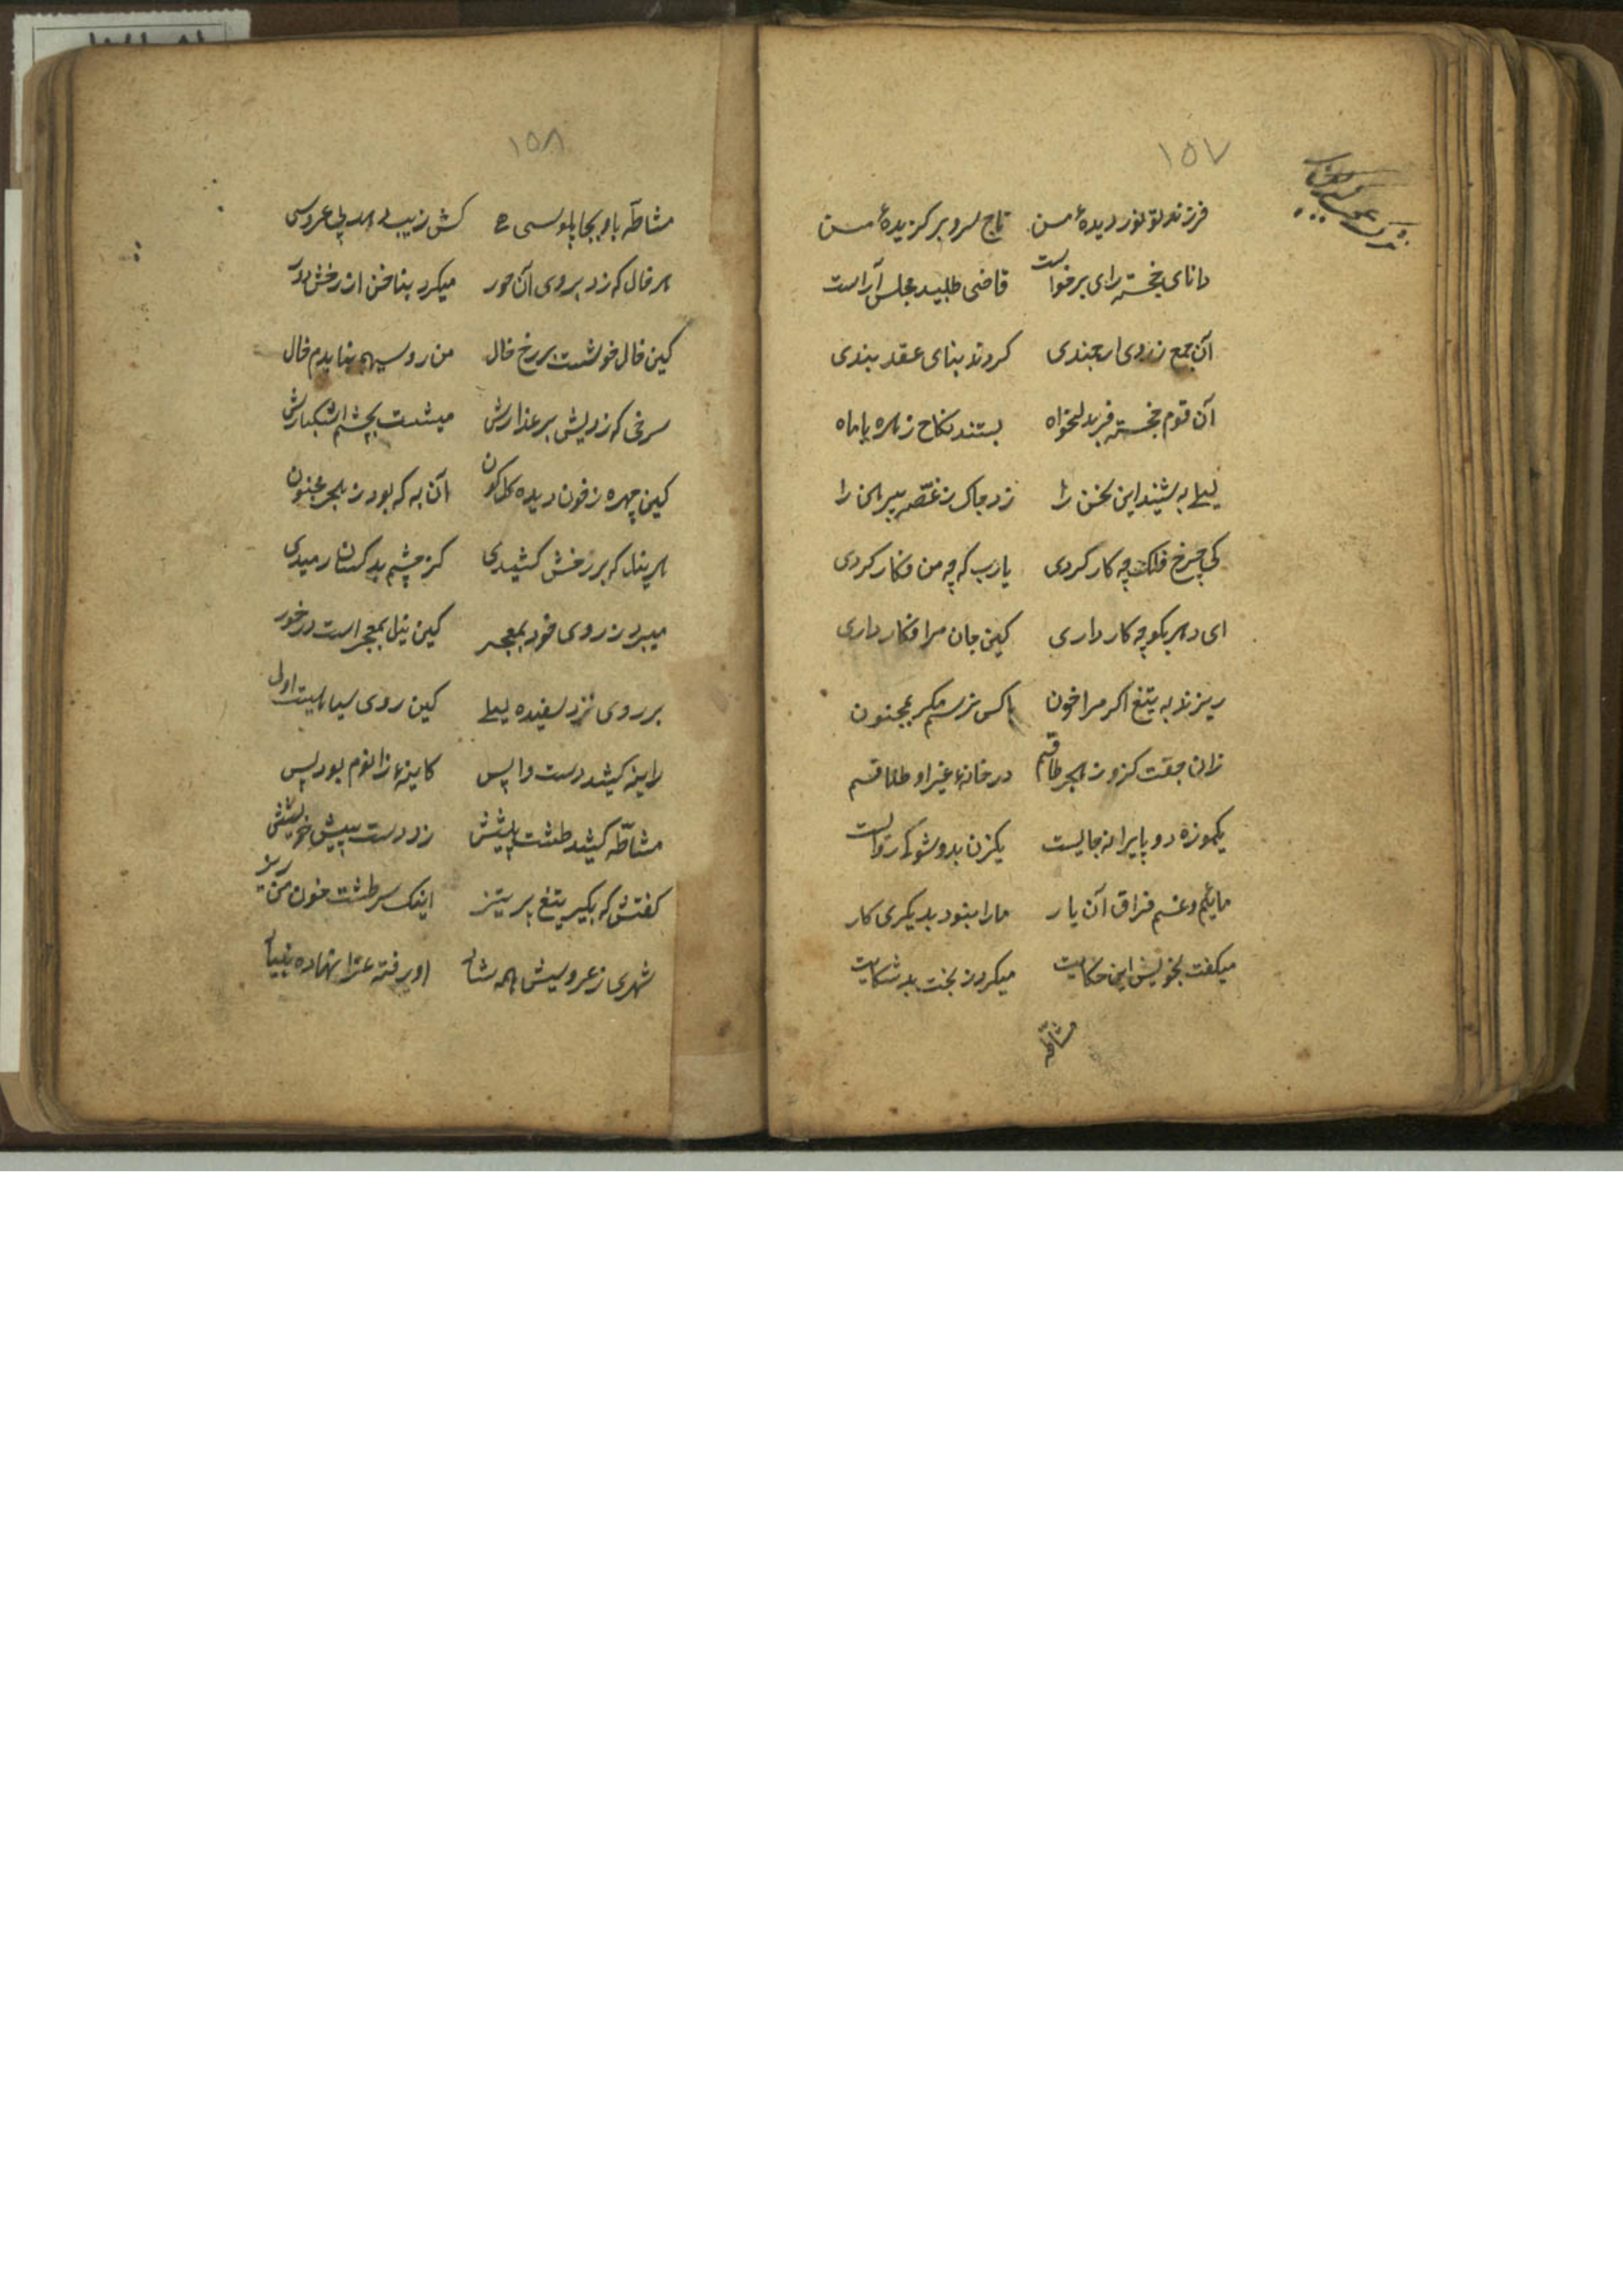 ۱۵۷
فرزند تو نور دیدهٔ من تاج سر و برگزیدهٔ من
دانای خجسته رای برخواست قاضی طلبید مجلس آراست
آن جمع ز روی ارجمندی کردند بنای عقد بندی
آن قوم خجسته فر دلخواه بستند نکاح زهره با ماه
لیلی به شنید این سخن را زد چاک ز غصّه پیرهن را
کی چرخ فلک چه کار کردی یارب که چه من فکار کردی
ای دهر بکو چه کار داری کین جان مرا فکار داری
ریزند به تیغ اکر مرا خون با کس نرسم مکر بمجنون
زان جفت کزو ز هجر طاقم در خانهٔ غیر او طلاقم
یکموزه دو پایرا نه جایست یکزن بدو شو کرواست
مائیم و غم فراق آن یار ما را نبود بدیکری کار
میکفت بخویش این حکایت میکرد ز بخت بد شکایت
مشاطّه
۱۵۸
مشاطّه باو بچاپلوسی کش زیب دهد پی عروسی
هر خال که زد بروی آن حور میکرد بناخن از رخش دور
کین خال خوشست بر رخ خال من رو سیهم نبایدم خال
سرخی که زدیش بر عذارش میشست بچشم اشکبارش
کین چهره ز خون دیده کلکون آن به که بود ز هجر مجنون
هر نیل که بر رخش کشیدی کز چشم بد کسان رمیدی
میبرد ز روی خود بمعجر کین نیل بمعجر است در خور
بر روی نزد سفیده لیلی کین روی سیاهیست اولی
زاینه کشید دست واپس کاینهٔ زانوم بود بس
مشاطّه کشید طشت پیشش زد دست بپیش خویشش
کفتش که بکیر تیغ پر تیز اینک سر طشت خون من ریز
شهری ز عروسیش همه شاد او رفته عزا نهاده بنیاد